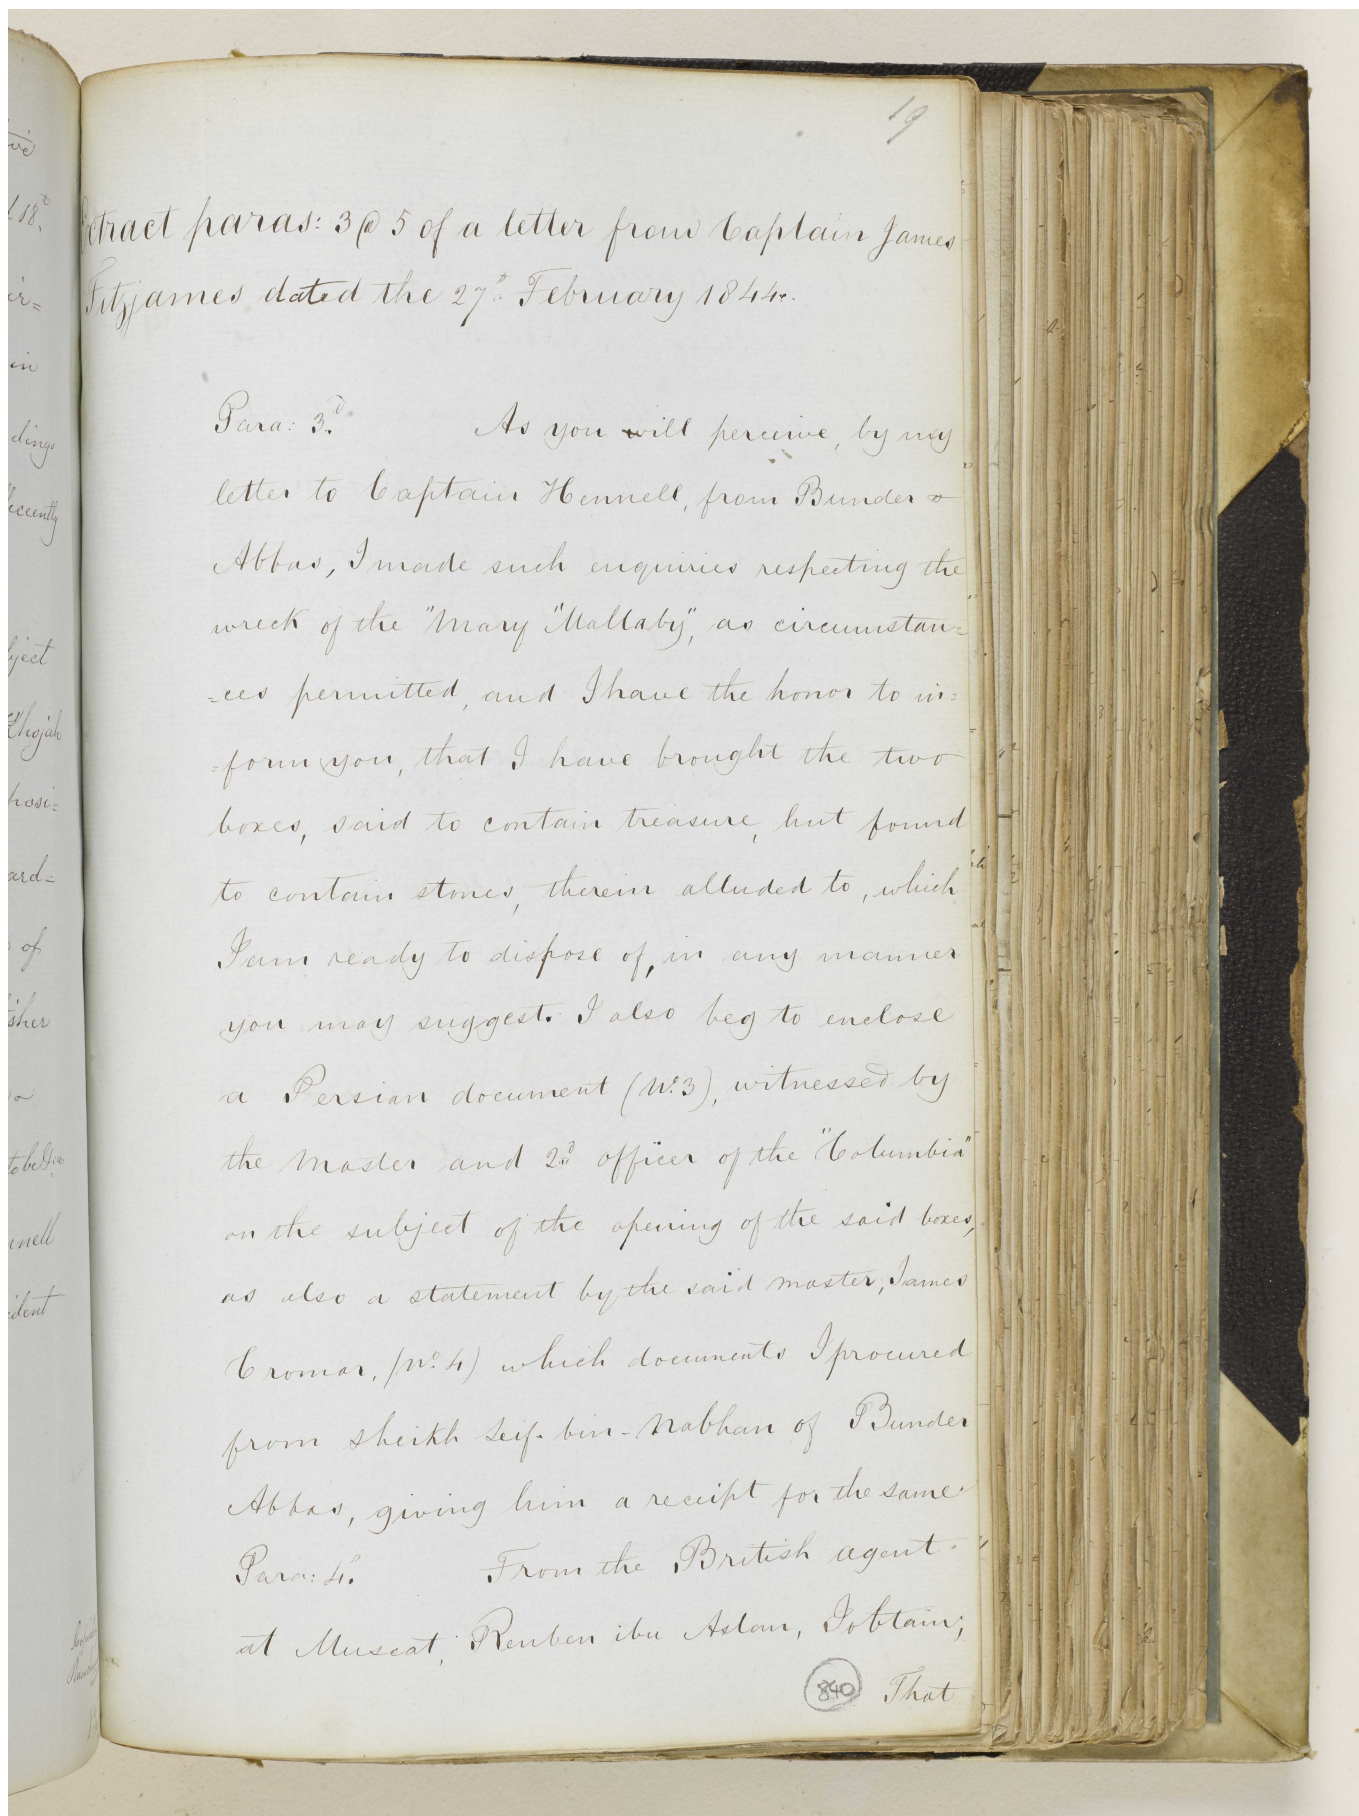 19
Extract paras: 3 @ 5 of a letter from Captain James
Fitzjames dated the 27th February 1844.
Para: 3d. As you will perceive, by my
letter to Captain Hennell, from Bunder
Abbas, I made such enquiries respecting the
wreck of the "Mary "Mallaby", as circumstan=
=ces permitted, and I have the honor to in=
=form you, that I have brought the two
boxes, said to contain treasure, but found
to contain stones, therein alluded to, which
I am ready to dispose of, in any manner
you may suggest. I also beg to enclose
a Persian document (No. 3), witnessed by
the Master and 2d officer of the "Columbia"
on the subject of the opening of the said boxes,
as also a statement by the said master, James
Cromar, (No. 4) which documents I procured
from sheikh Seif- bin- Nabhan of Bunder
Abbas, giving him a receipt for the same.
Para: 4. From the British agent
at Muscat, Reuben ibu Aslan, I obtain;
840 That